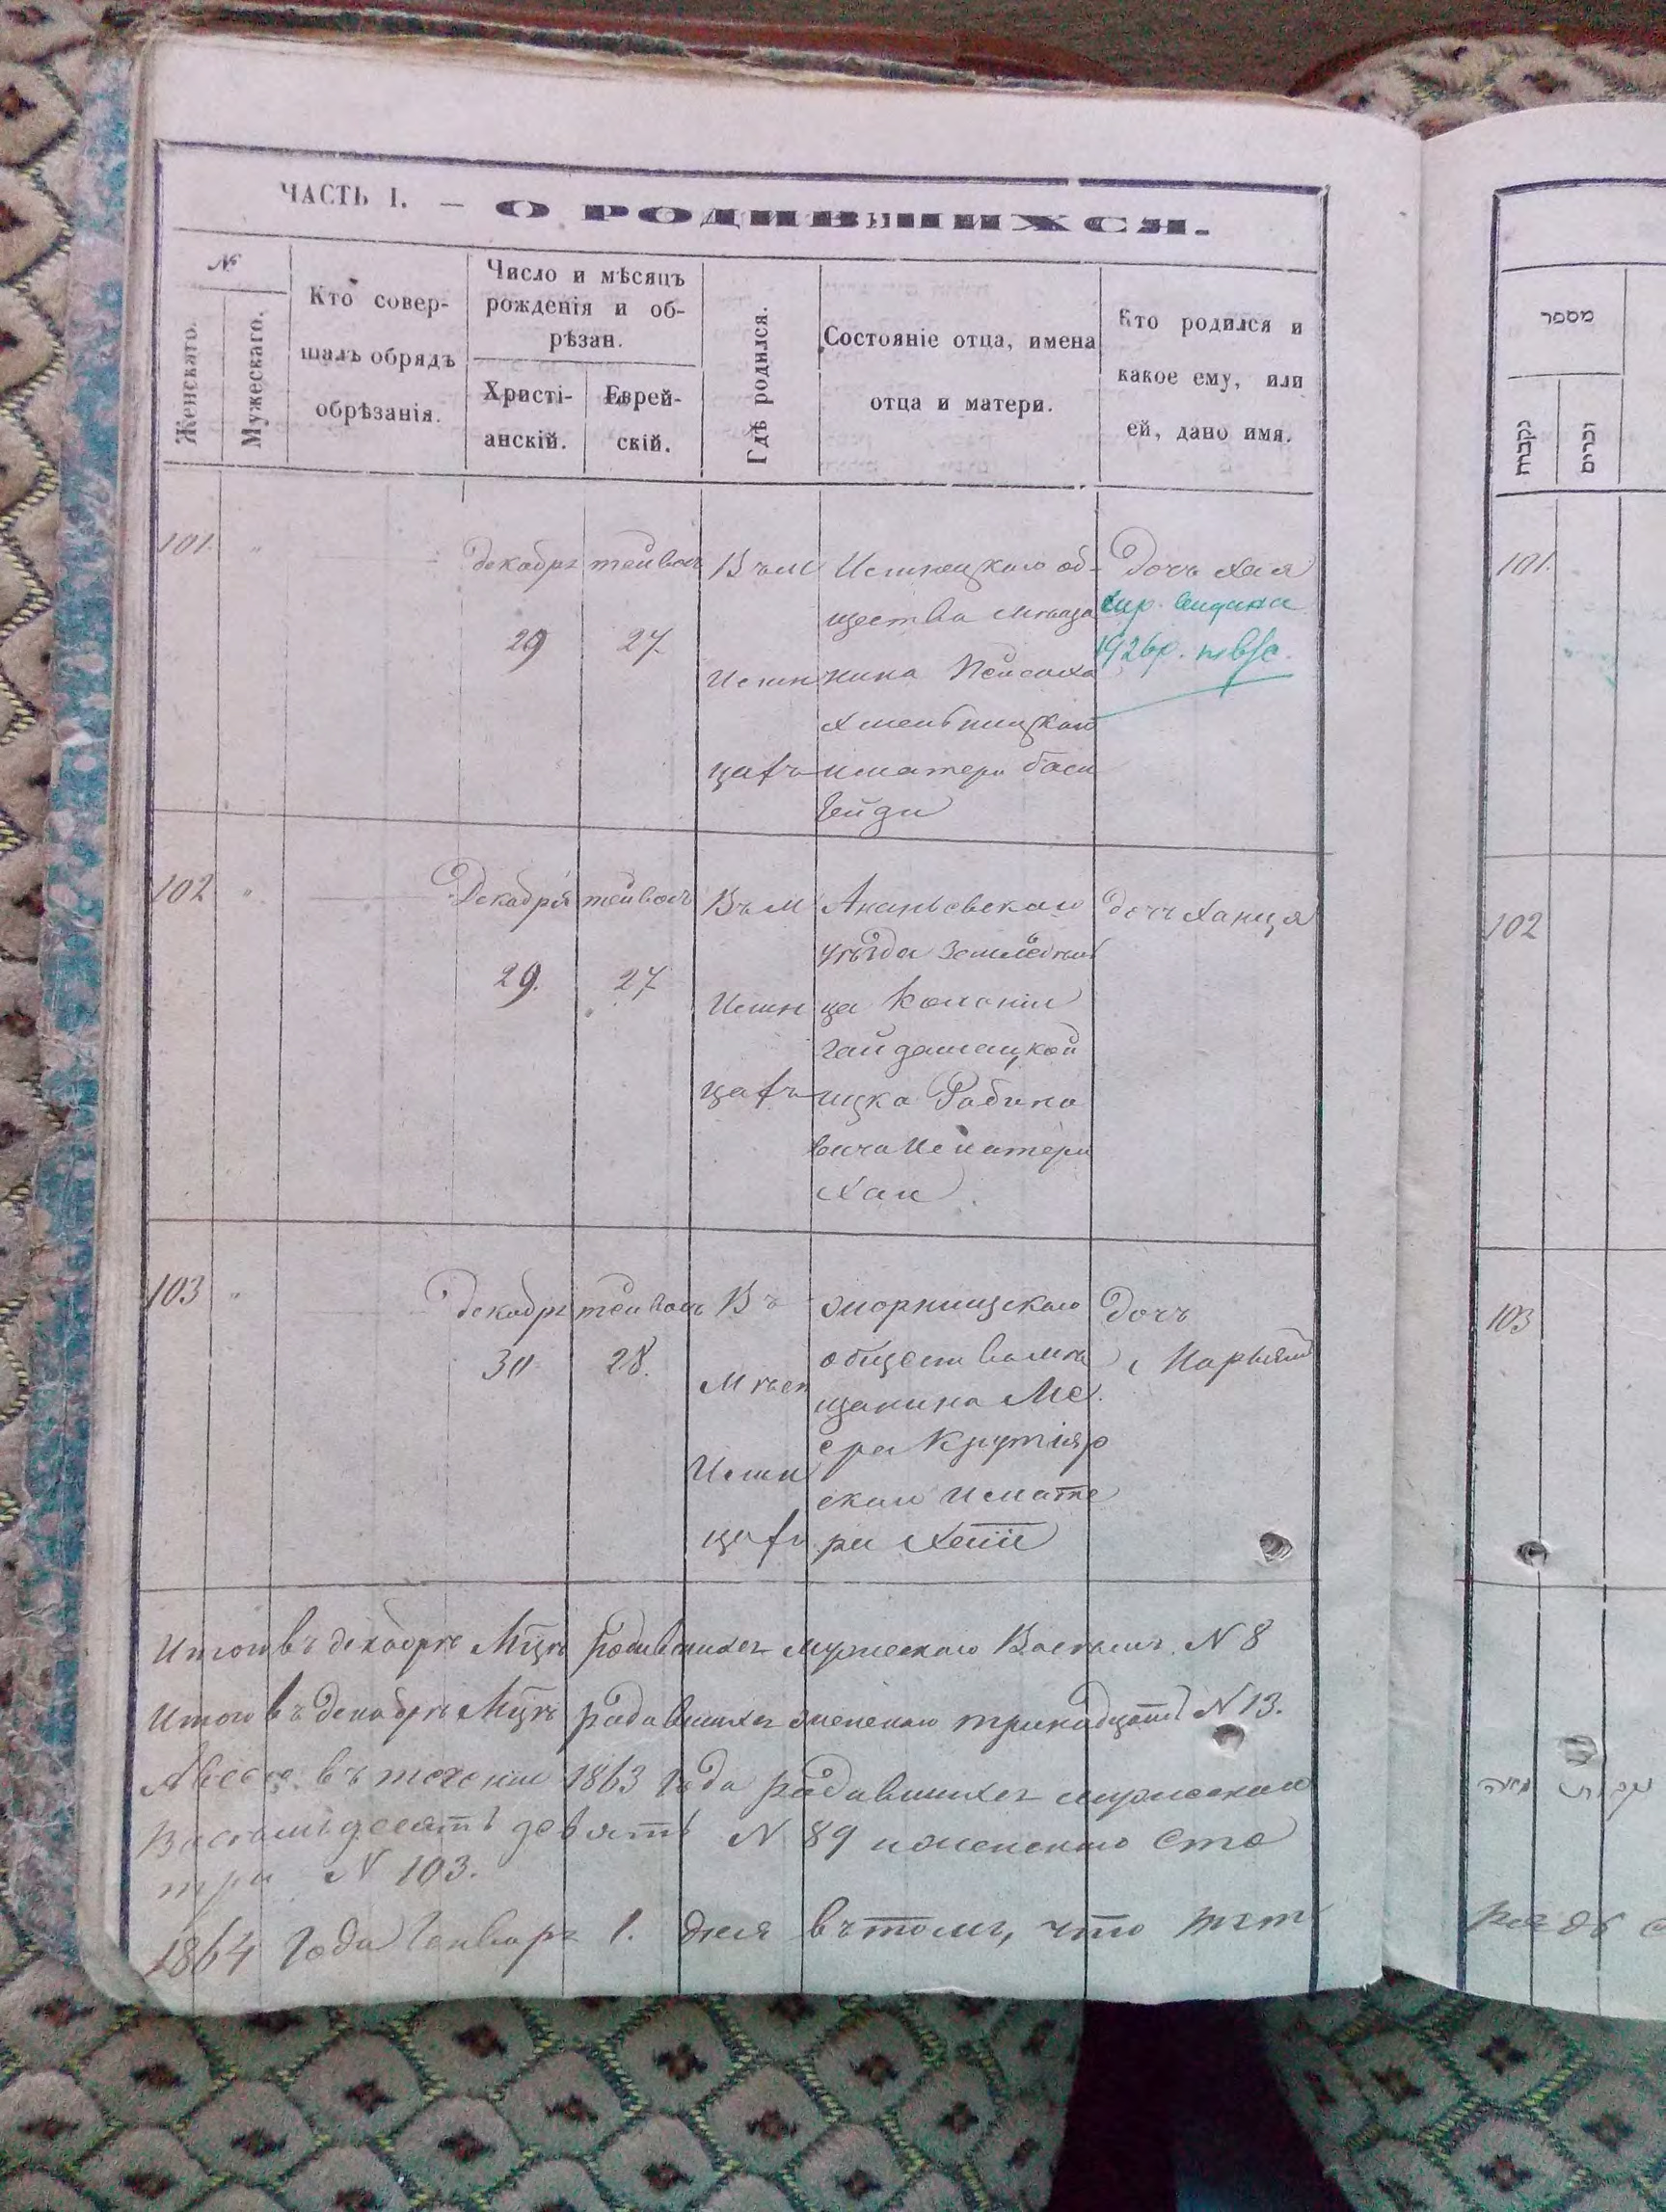 ЧАСТЬ I. — О РОДИВШИХСЯ.
№
Женскаго.
Мужескаго.
Кто совер-
шалъ обрядъ
обрѣзанія.
Число и мѣсяцъ
рожденія и об-
рѣзан.
Христі-
анскій.
Еврей-
скій.
Гдѣ родился.
Состояніе отца, имена
отца и матери.
Кто родился и
какое ему, или
ей, дано имя.
101. "
декабря
29
тейвасъ
27
Въ М
Исти
цахъ
общества мѣща
нина Пейсаха
Хмельницкаго
и матери Баси
Гейди
Дочь Хая
1926р.
102 "
Декабря
29.
тейвасъ
27
Въ М
Исти
цахъ
Ананьевскаго
уѣзда Земледѣль
ца Колоніи
Гайдамацкой
Ицка Рабино
вича И матери
Хаи
дочь Ханця
103 "
декабря
30
тейвасъ
28.
Въ
Мѣст
Исти
цахъ
жорнищскаго
общества мѣ
щанина Ме
ера Крутіяр
скаго И мате
ри Хени
дочь
Марьямъ
Итого въ декабрѣ Мцѣ родившихся мужескаго Восемь N 8
Итого въ декабрѣ Мцѣ родавшихся женскаго тринадцать N 13.
А всего въ теченіи 1863 Года родавшихся мужескаго
Восемьдесятъ девять N 89 и женскаго Сто
три N 103.
1864 Года Генваря 1. дня въ томъ, что
מספר
נקבות
זכרים
101.
102
103